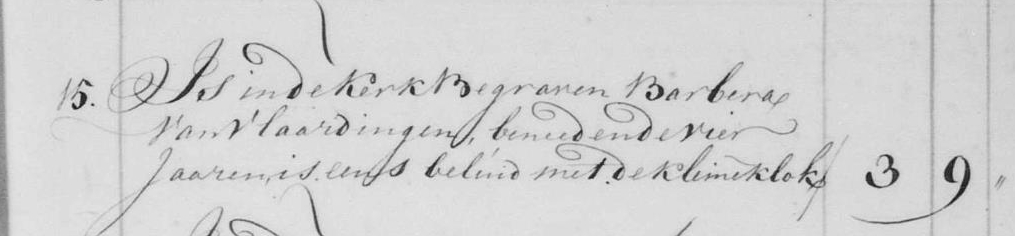 15. Is in de Kerk Begraven Barbera
van Vlaardingen, beneeden de vier
Jaaren, is eens belúid met de kleine klok 3 9 "